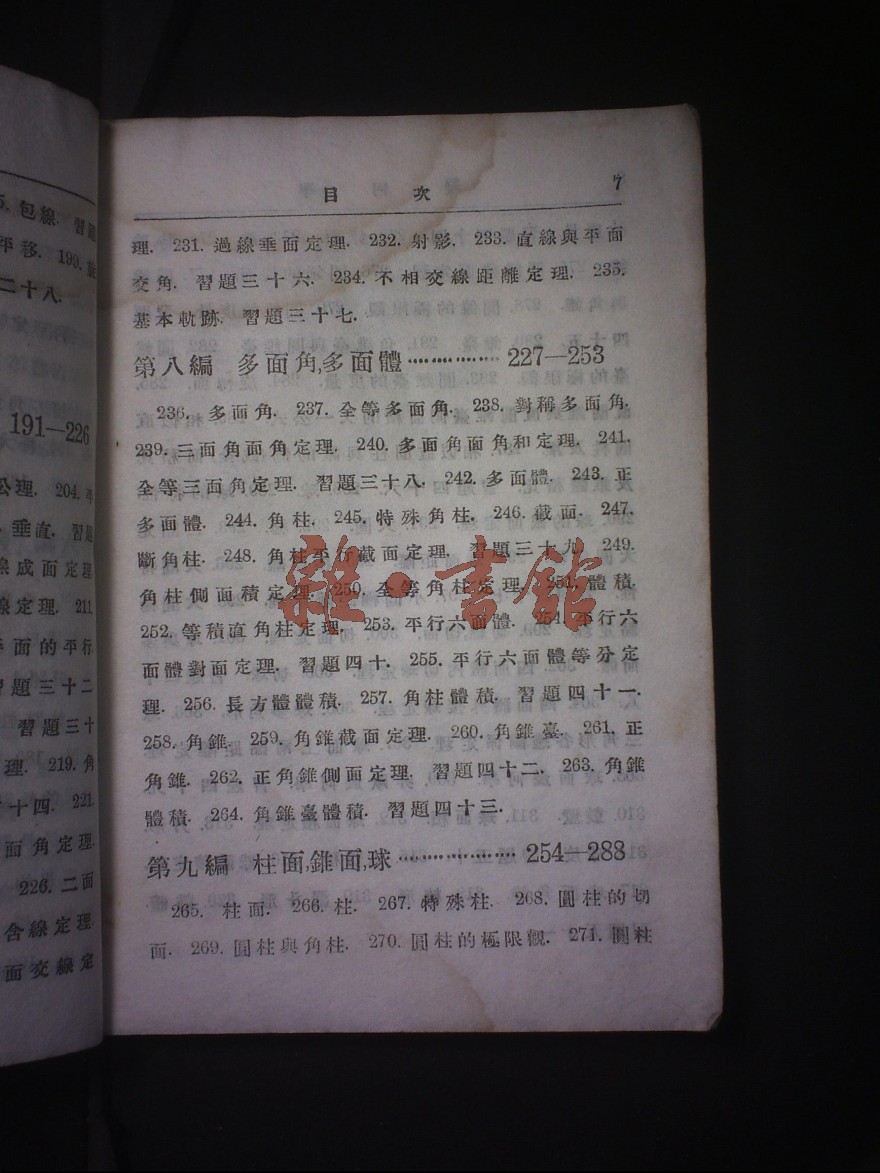 5. 包線. 習題
平移. 199.
二十八.
191—226
公理. 204. 平
垂直. 習題
線成面定理
線定理. 211.
面的平行
習題三十二
習題三十
理. 219. 角
十四. 221.
面角定理.
226. 二面
含線定理.
面交線定
目 次 7
理. 231. 過線垂面定理. 232. 射影. 233. 直線與平面
交角. 習題三十六. 234. 不相交線距離定理. 235.
基本軌跡. 習題三十七.
第八編 多面角,多面體 ……………… 227—253
236. 多面角. 237. 全等多面角. 238. 對稱多面角.
239. 三面角面角定理. 240. 多面角面角和定理. 241.
全等三面角定理. 習題三十八. 242. 多面體. 243. 正
多面體. 244. 角柱. 245. 特殊角柱. 246. 截面. 247.
斷角柱. 248. 角柱平行截面定理. 習題三十九. 249.
角柱側面積定理. 250. 全等角柱定理. 251. 體積.
252. 等積直角柱定理. 253. 平行六面體. 254. 平行六
面體對面定理. 習題四十. 255. 平行六面體等分定
理. 256. 長方體體積. 257. 角柱體積. 習題四十一.
258. 角錐. 259. 角錐截面定理. 260. 角錐臺. 261. 正
角錐. 262. 正角錐側面定理. 習題四十二. 263. 角錐
體積. 264. 角錐臺體積. 習題四十三.
第九編 柱面,錐面,球 ……………… 254—288
265. 柱面. 266. 柱. 267. 特殊柱. 268. 圓柱的切
面. 269. 圓柱與角柱. 270. 圓柱的極限觀. 271. 圓柱
雜·書館